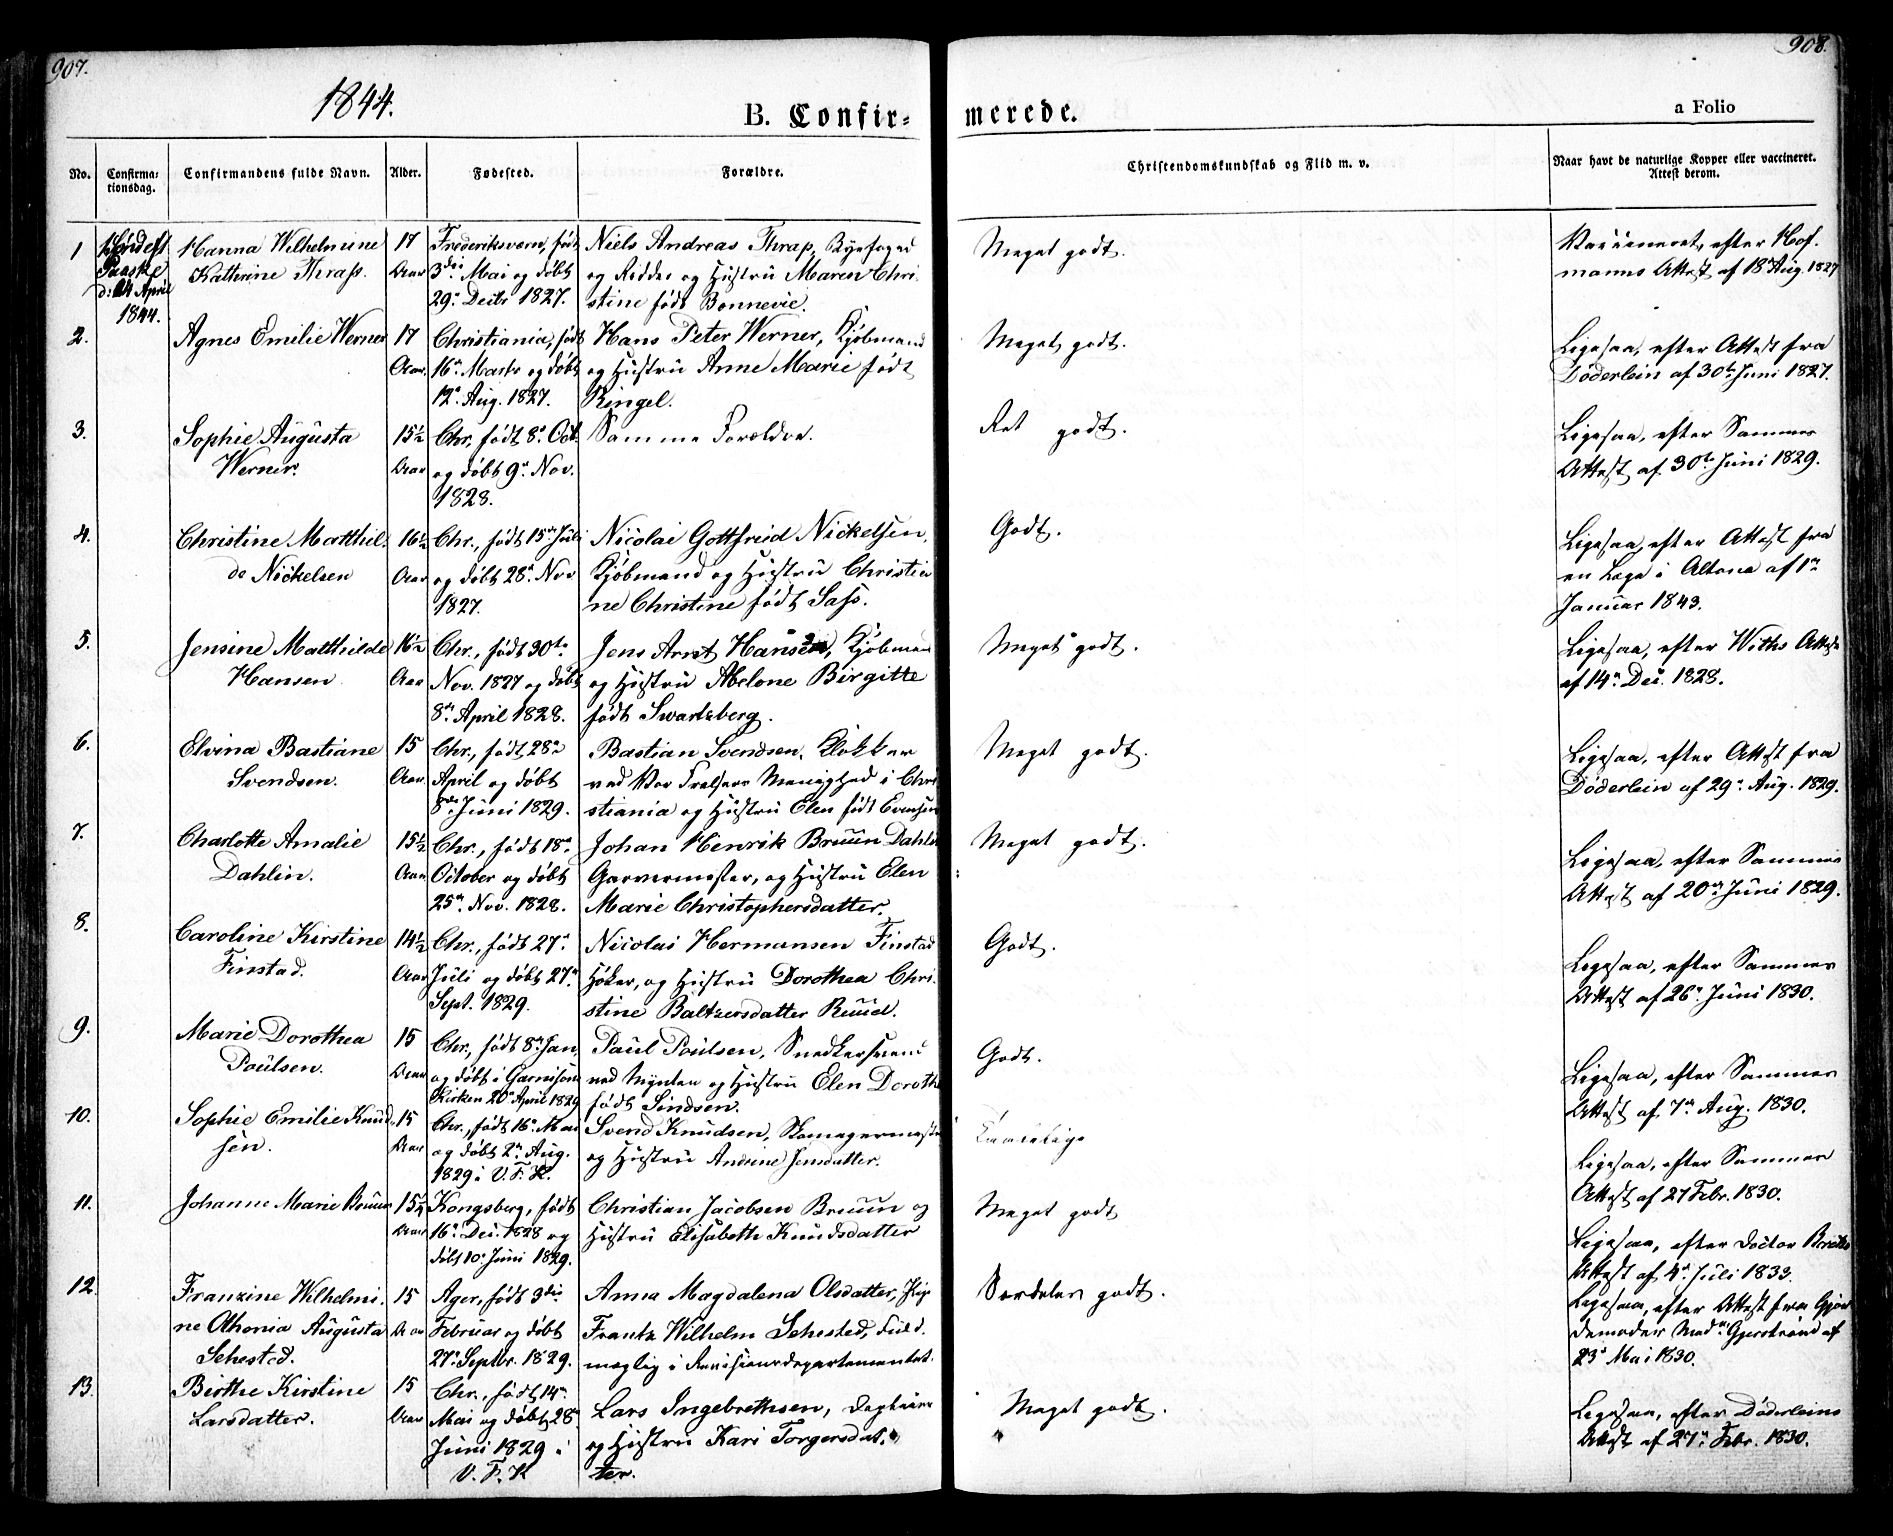 907.
908.
1844.
B. Confir-
merede.
a Folio
No.
Confirma-
tionsdag.
Confirmandens fulde Navn.
Alder.
Fødested.
Forældre.
Christendomskundskab og Flid m. v.
Naar havt de naturlige Kopper eller vaccineret.
Attest derom.
1
Søndag
Paaske
d: 14 April
1844.
Hanna Wilhelmine
Kathrine Thrap.
17
Aar
Frederiksværn, født
3die Mai og døbt
29de Decbr 1827.
Niels Andreas Thrap, Byefoged
og Ridder og Hustru Maren Chri-
stine født Bonnevie.
Meget godt.
Vaccineret, efter Hof-
manns Attest af 18 Aug. 1827
2.
Agnes Emilie Werner
17
Aar.
Christiania, født
16de Marts og døbt
12te Aug. 1827.
Hans Peter Werner, Kjøbmand
og Hustru Anne Marie født
Ringel.
Meget godt.
Ligesaa, efter Attest fra
Döderlein af 30te Juni 1827.
3.
Sophie Augusta
Werner.
15½
Aar
Chr. født 8de Oct.
og døbt 9de Nov.
1828.
Samme Forældre.
Ret godt.
Ligesaa, efter Sammes
Attest af 30te Juni 1829.
4.
Christine Matthil-
de Nickelsen
16½
Aar
Chr., født 15de Juli
og døbt 28de Nov
1827.
Nicolai Gottfried Nickelsen,
Kjøbmand og Hustru Christia-
ne Christine født Sass.
Godt.
Ligesaa, efter Attest fra
en Læge i Altona af 1ste
Januar 1843.
5.
Jensine Matthilde
Hansen
16½
Aar
Chr., født 30te
Nov. 1827 og døbt
8de April 1828.
Jens Arnt Hansen, Kjøbmand
og Hustru Abelone Birgitte
født Swartzberg.
Meget godt.
Ligesaa, efter Withs Attest
af 14de Dec. 1828.
6.
Elvina Bastiane
Svendsen.
15
Aar.
Chr., født 28de
April og døbt
8de Juni 1829.
Bastian Svendsen, Klokker
ved Vor Frelsers Menighed i Chri-
stiania og Hustru Elen født Evensen
Meget godt.
Ligesaa, efter Attest fra
Döderlein af 29de Aug. 1829.
7.
Charlotte Amalie
Dahlin.
15½
Aar
Chr., født 18de
October og døbt
25de Nov. 1828.
Johan Henrik Bruun Dahlin
Garvermester, og Hustru Elen
Marie Christophersdatter.
Meget godt.
Ligesaa, efter Sammes
Attest af 20de Juni 1829.
8.
Caroline Kirstine
Finstad.
14½
Aar
Chr., født 27de
Juli og døbt 27de
Sept. 1829.
Nicolai Hermansen Finstad
Høker, og Hustru Dorothea Chri-
stine Baltzersdatter Ruud.
Godt.
Ligesaa, efter Sammes
Attest af 26de Juni 1830.
9.
Marie Dorothea
Poulsen.
15
Aar
Chr., født 8de Jan.
og døbt i Garnisons
Kirken 20de April 1829
Paul Poulsen, Snedkersvend
ved Mynten og Hustru Elen Doroth
født Sindsen.
Godt.
Ligesaa, efter Sammes
Attest af 7de Aug. 1830.
10.
Sophie Emilie Knud-
sen.
15
Aar
Chr., født 16de Mai
og døbt 2den Aug.
1829 i V. F. K.
Svend Knudsen, Skomagermester
og Hustru Andrine Jensdatter.
Ligesaa, efter Sammes
Attest af 27 Febr. 1830.
11.
Johanne Marie Bruun
15½
Aar
Kongsberg, født
16de Dec. 1828 og
døbt 10de Juni 1829.
Christian Jacobsen Bruun og
Hustru Elisabeth Knudsdatter
Meget godt
Ligesaa, efter Doctor
Attest af 4de Juli 1833.
12.
Franzine Wilhelmi-
ne Athonia Augusta
Sehested.
15
Aar
Ager, født 3die
Februar og døbt
27de Septbr. 1829.
Anna Magdalena Olsdatter, Pige
Frantz Wilhelm Sehested, Fuld-
mægtig i Revisionsdepartementet.
Særdeles godt.
Ligesaa, efter Attest fra Gjor-
demoder Mad. Gjerstrand af
23de Mai 1830.
13.
Birthe Kirstine
Larsdatter.
15
Aar
Chr., født 14de
Mai og døbt 28de
Juni 1829 i
V. F. K
Lars Ingebrethsen,
og Hustru Kari Torgersdat-
ter.
Meget godt.
Ligesaa, efter Döderleins
Attest af 27de Febr. 1830.